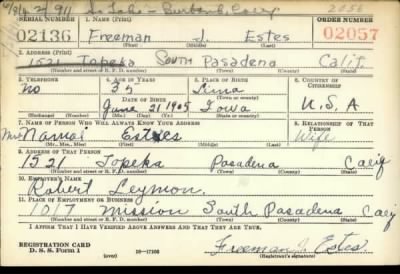 SERIAL NUMBER 1. NAME (Print) ORDER NUMBER
02136 Freeman J. Estes 02057
(First) (Middle) (Last)
2. ADDRESS (Print)
1521 Topeka South Pasadena Calif.
(Number and street or R. F. D. number) (Town) (County) (State)
3. TELEPHONE 4. AGE IN YEARS 5. PLACE OF BIRTH 6. COUNTRY OF CITIZENSHIP
no 35 Lima
DATE OF BIRTH (Town or county)
June 21 1905 Iowa U.S.A
(Exchange) (No.) (Mo.) (Day) (Yr.) (State or country)
7. NAME OF PERSON WHO WILL ALWAYS KNOW YOUR ADDRESS 8. RELATIONSHIP OF THAT PERSON
Mrs Estes Wife
(Mr., Mrs., Miss) (First) (Middle) (Last)
9. ADDRESS OF THAT PERSON
1521 Topeka Pasadena Calif
(Number and street or R. F. D. number) (Town) (County) (State)
10. EMPLOYER'S NAME
Robert
11. PLACE OF EMPLOYMENT OR BUSINESS
1017 Mission South Pasadena Calif
(Number and street or R. F. D. number) (Town) (County) (State)
I AFFIRM THAT I HAVE VERIFIED ABOVE ANSWERS AND THAT THEY ARE TRUE.
REGISTRATION CARD
D. S. S. Form 1 (over) 16—17105 Freeman J. Estes
(Registrant's signature)